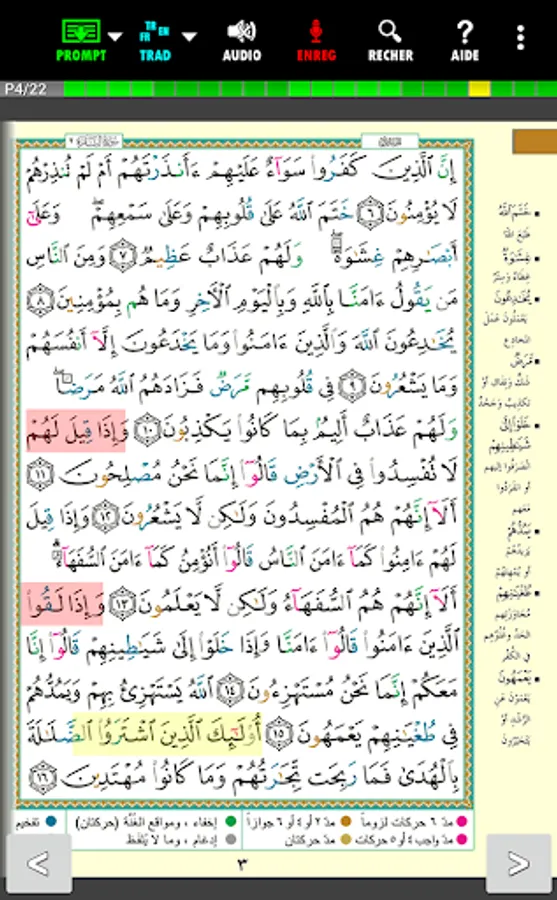 PROMPT TRAD TR FR EN AUDIO ENREG RECHER AIDE
P4/22
إِنَّ ٱلَّذِينَ كَفَرُوا۟ سَوَآءٌ عَلَيْهِمْ ءَأَنذَرْتَهُمْ أَمْ لَمْ تُنذِرْهُمْ
لَا يُؤْمِنُونَ ٦ خَتَمَ ٱللَّهُ عَلَىٰ قُلُوبِهِمْ وَعَلَىٰ سَمْعِهِمْ ۖ وَعَلَىٰٓ
أَبْصَـٰرِهِمْ غِشَـٰوَةٌ ۖ وَلَهُمْ عَذَابٌ عَظِيمٌ ٧ وَمِنَ ٱلنَّاسِ
مَن يَقُولُ ءَامَنَّا بِٱللَّهِ وَبِٱلْيَوْمِ ٱلْـَٔاخِرِ وَمَا هُم بِمُؤْمِنِينَ ٨
يُخَـٰدِعُونَ ٱللَّهَ وَٱلَّذِينَ ءَامَنُوا۟ وَمَا يَخْدَعُونَ إِلَّآ أَنفُسَهُمْ
وَمَا يَشْعُرُونَ ٩ فِى قُلُوبِهِم مَّرَضٌ فَزَادَهُمُ ٱللَّهُ مَرَضًا ۖ
وَلَهُمْ عَذَابٌ أَلِيمٌۢ بِمَا كَانُوا۟ يَكْذِبُونَ ١٠ وَإِذَا قِيلَ لَهُمْ
لَا تُفْسِدُوا۟ فِى ٱلْأَرْضِ قَالُوٓا۟ إِنَّمَا نَحْنُ مُصْلِحُونَ ١١
أَلَآ إِنَّهُمْ هُمُ ٱلْمُفْسِدُونَ وَلَـٰكِن لَّا يَشْعُرُونَ ١٢ وَإِذَا قِيلَ
لَهُمْ ءَامِنُوا۟ كَمَآ ءَامَنَ ٱلنَّاسُ قَالُوٓا۟ أَنُؤْمِنُ كَمَآ ءَامَنَ ٱلسُّفَهَآءُ ۗ
أَلَآ إِنَّهُمْ هُمُ ٱلسُّفَهَآءُ وَلَـٰكِن لَّا يَعْلَمُونَ ١٣ وَإِذَا لَقُوا۟
ٱلَّذِينَ ءَامَنُوا۟ قَالُوٓا۟ ءَامَنَّا وَإِذَا خَلَوْا۟ إِلَىٰ شَيَـٰطِينِهِمْ قَالُوٓا۟ إِنَّا
مَعَكُمْ إِنَّمَا نَحْنُ مُسْتَهْزِءُونَ ١٤ ٱللَّهُ يَسْتَهْزِئُ بِهِمْ وَيَمُدُّهُمْ
فِى طُغْيَـٰنِهِمْ يَعْمَهُونَ ١٥ أُو۟لَـٰٓئِكَ ٱلَّذِينَ ٱشْتَرَوُا۟ ٱلضَّلَـٰلَةَ
بِٱلْهُدَىٰ فَمَا رَبِحَت تِّجَـٰرَتُهُمْ وَمَا كَانُوا۟ مُهْتَدِينَ ١٦
خَتَمَ اللهُ
طَبَعَ اللهُ
غِشَاوَةٌ
غِطَاءٌ وَسِتْرٌ
يُخَادِعُونَ
يَعْمَلُونَ عَمَلَ
المُخَادِعِ
مَرَضٌ
شَكٌّ وَنِفَاقٌ أَوْ
تَكْذِيبٌ وَجَحْدٌ
خَلَوْا إِلَى
شَيَاطِينِهِمْ
انْصَرَفُوا إِلَيْهِمْ
أَوِ انْفَرَدُوا
مَعَهُمْ
يَمُدُّهُمْ
يَزِيدُهُمْ
أَوْ يُمْهِلُهُمْ
طُغْيَانِهِمْ
مُجَاوَزَتِهِمُ
الحَدَّ وَغُلُوِّهِمْ
فِي الكُفْرِ
يَعْمَهُونَ
يَعْمَوْنَ عَنِ
الرُّشْدِ أَوْ
يَتَحَيَّرُونَ
مدّ ٦ حركات لزوماً مدّ ٢ أو ٤ أو ٦ جوازاً إخفاء ، ومواقع الغُنَّة (حركتان) تفخيم
مدّ واجب ٤ أو ٥ حركات مدّ حركتان إدغام ، وما لا يُلفَظ
٣